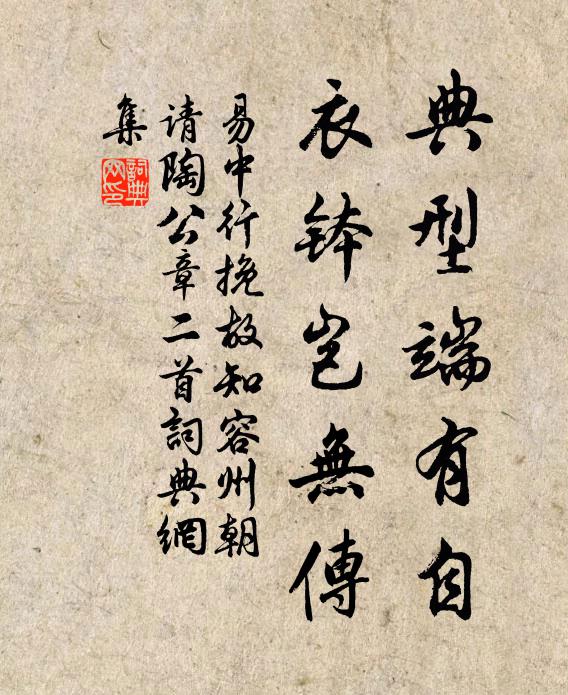 典型端有自
衣鉢豈無傳
易中行挽故知容州朝
请陶公章二首詞典網
集
詞典
网印